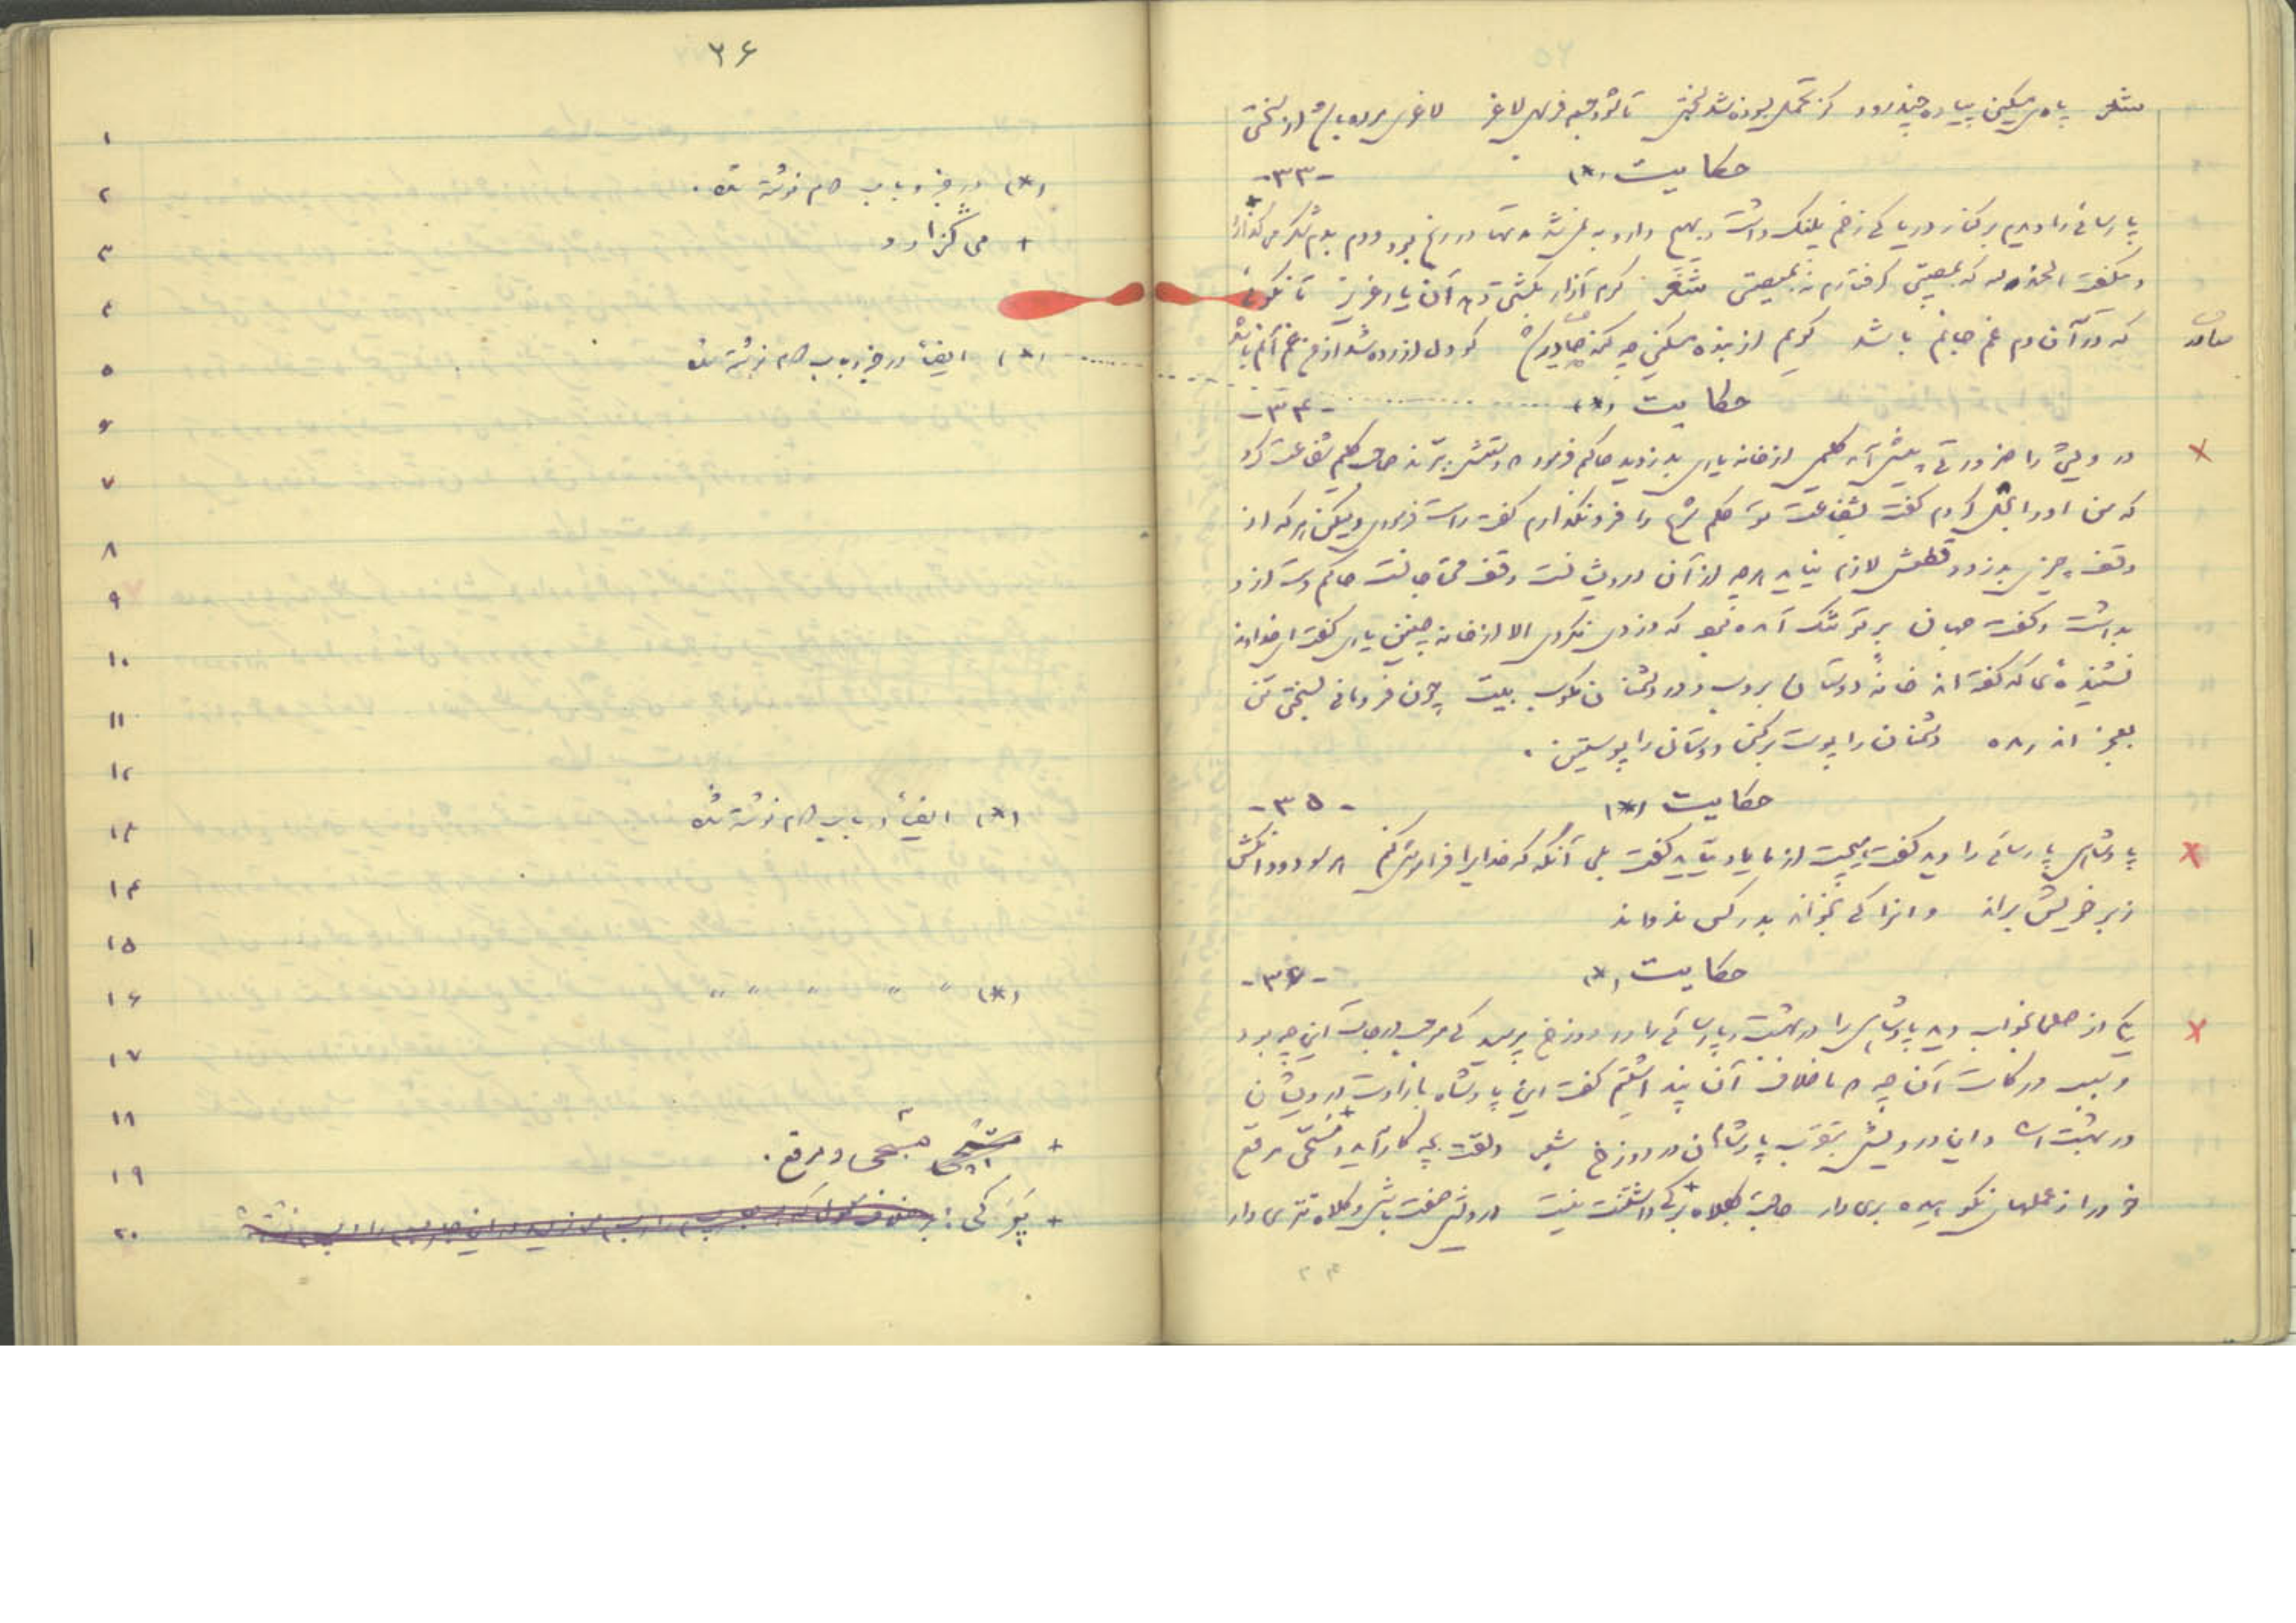 شعر پای مسکین پیاده چند رود کز تحمل ستوه شد بختی تا شود جسم فربهی لاغر لاغری مرده باشد از سختی
حکایت (*) -۳۳-
پارسائی را دیدم بر کنار دریا که زخم پلنگ داشت و بهیچ دارو به نمیشد مدتها در رنج بود و دم بدم شکر می گذارد
و میگفت الحمدلله که بمصیبتی گرفتارم نه بمعصیتی شعر گرم آزار بکشتن دهد آن یار عزیز تا نگوئی
که در آن دم غم جانم باشد گویم از بنده مسکین چه گنه صادر شد کو دل آزرده شد از من غم آنم باشد
صادر
حکایت (*) -۳۴-
درویشی را ضرورتی پیش آمد گلیمی از خانه یاری بدزدید حاکم فرمود دستش ببرند صاحب گلیم شفاعت کرد
که من او را بحل کردم گفت بشفاعت تو حکم شرع را فرو نگذارم گفت راست فرمودی ولیکن هر که از
وقف چیزی بدزدد قطعش لازم نیاید هر چه از آن درویشانست وقف محتاجانست حاکم دست از و
بداشت و گفت جهان بر تو تنگ آمده بود که دزدی نکردی الا از خانه چنین یاری گفت ای خداوند
نشنیده ای که گفته اند خانه دوستان بروب و در دشمنان مکوب بیت چون فرومانی بسختی تن
بعجز اندر مده دشمنان را پوست برکن دوستان را پوستین .
حکایت (*) -۳۵-
پادشاهی پارسائی را دید گفت هیچت از ما یاد میآید گفت بلی آنگه که خدایرا فراموش کنم هر سو دود آنکش
زبر خویش براند و انرا که بخواند بدر کس ندواند
حکایت (*) -۳۶-
یکی از صلحا بخواب دید پادشاهی را در بهشت و پارسائی را در دوزخ پرسید که موجب درجات این چه بود
و سبب درکات آن چه ما خلاف آن پند اشتیم گفت این پادشاه بارادت درویشان
در بهشت است و این درویش بتقرب پادشاهان در دوزخ شعر دلقت بچه کار آید و مسحی مرقع
خود را ز عملهای نکوهیده بری دار حاجت بکلاه برکی داشتنت نیست درویش صفت باش و کلاه تتری دار
۳۶
۱
۲ (*) در جزو باب هم نوشته شده .
۳ + می گزارد
۴
۵ (*) ایضاً در جزو باب هم نوشته شده
۶
۷
۸
۹
۱۰
۱۱
۱۲
۱۳ (*) ایضاً در باب هم نوشته شده
۱۴
۱۵
۱۶ (*) " " " " "
۱۷
۱۸
۱۹ + مسحی و مرقع .
۲۰ + برکی :